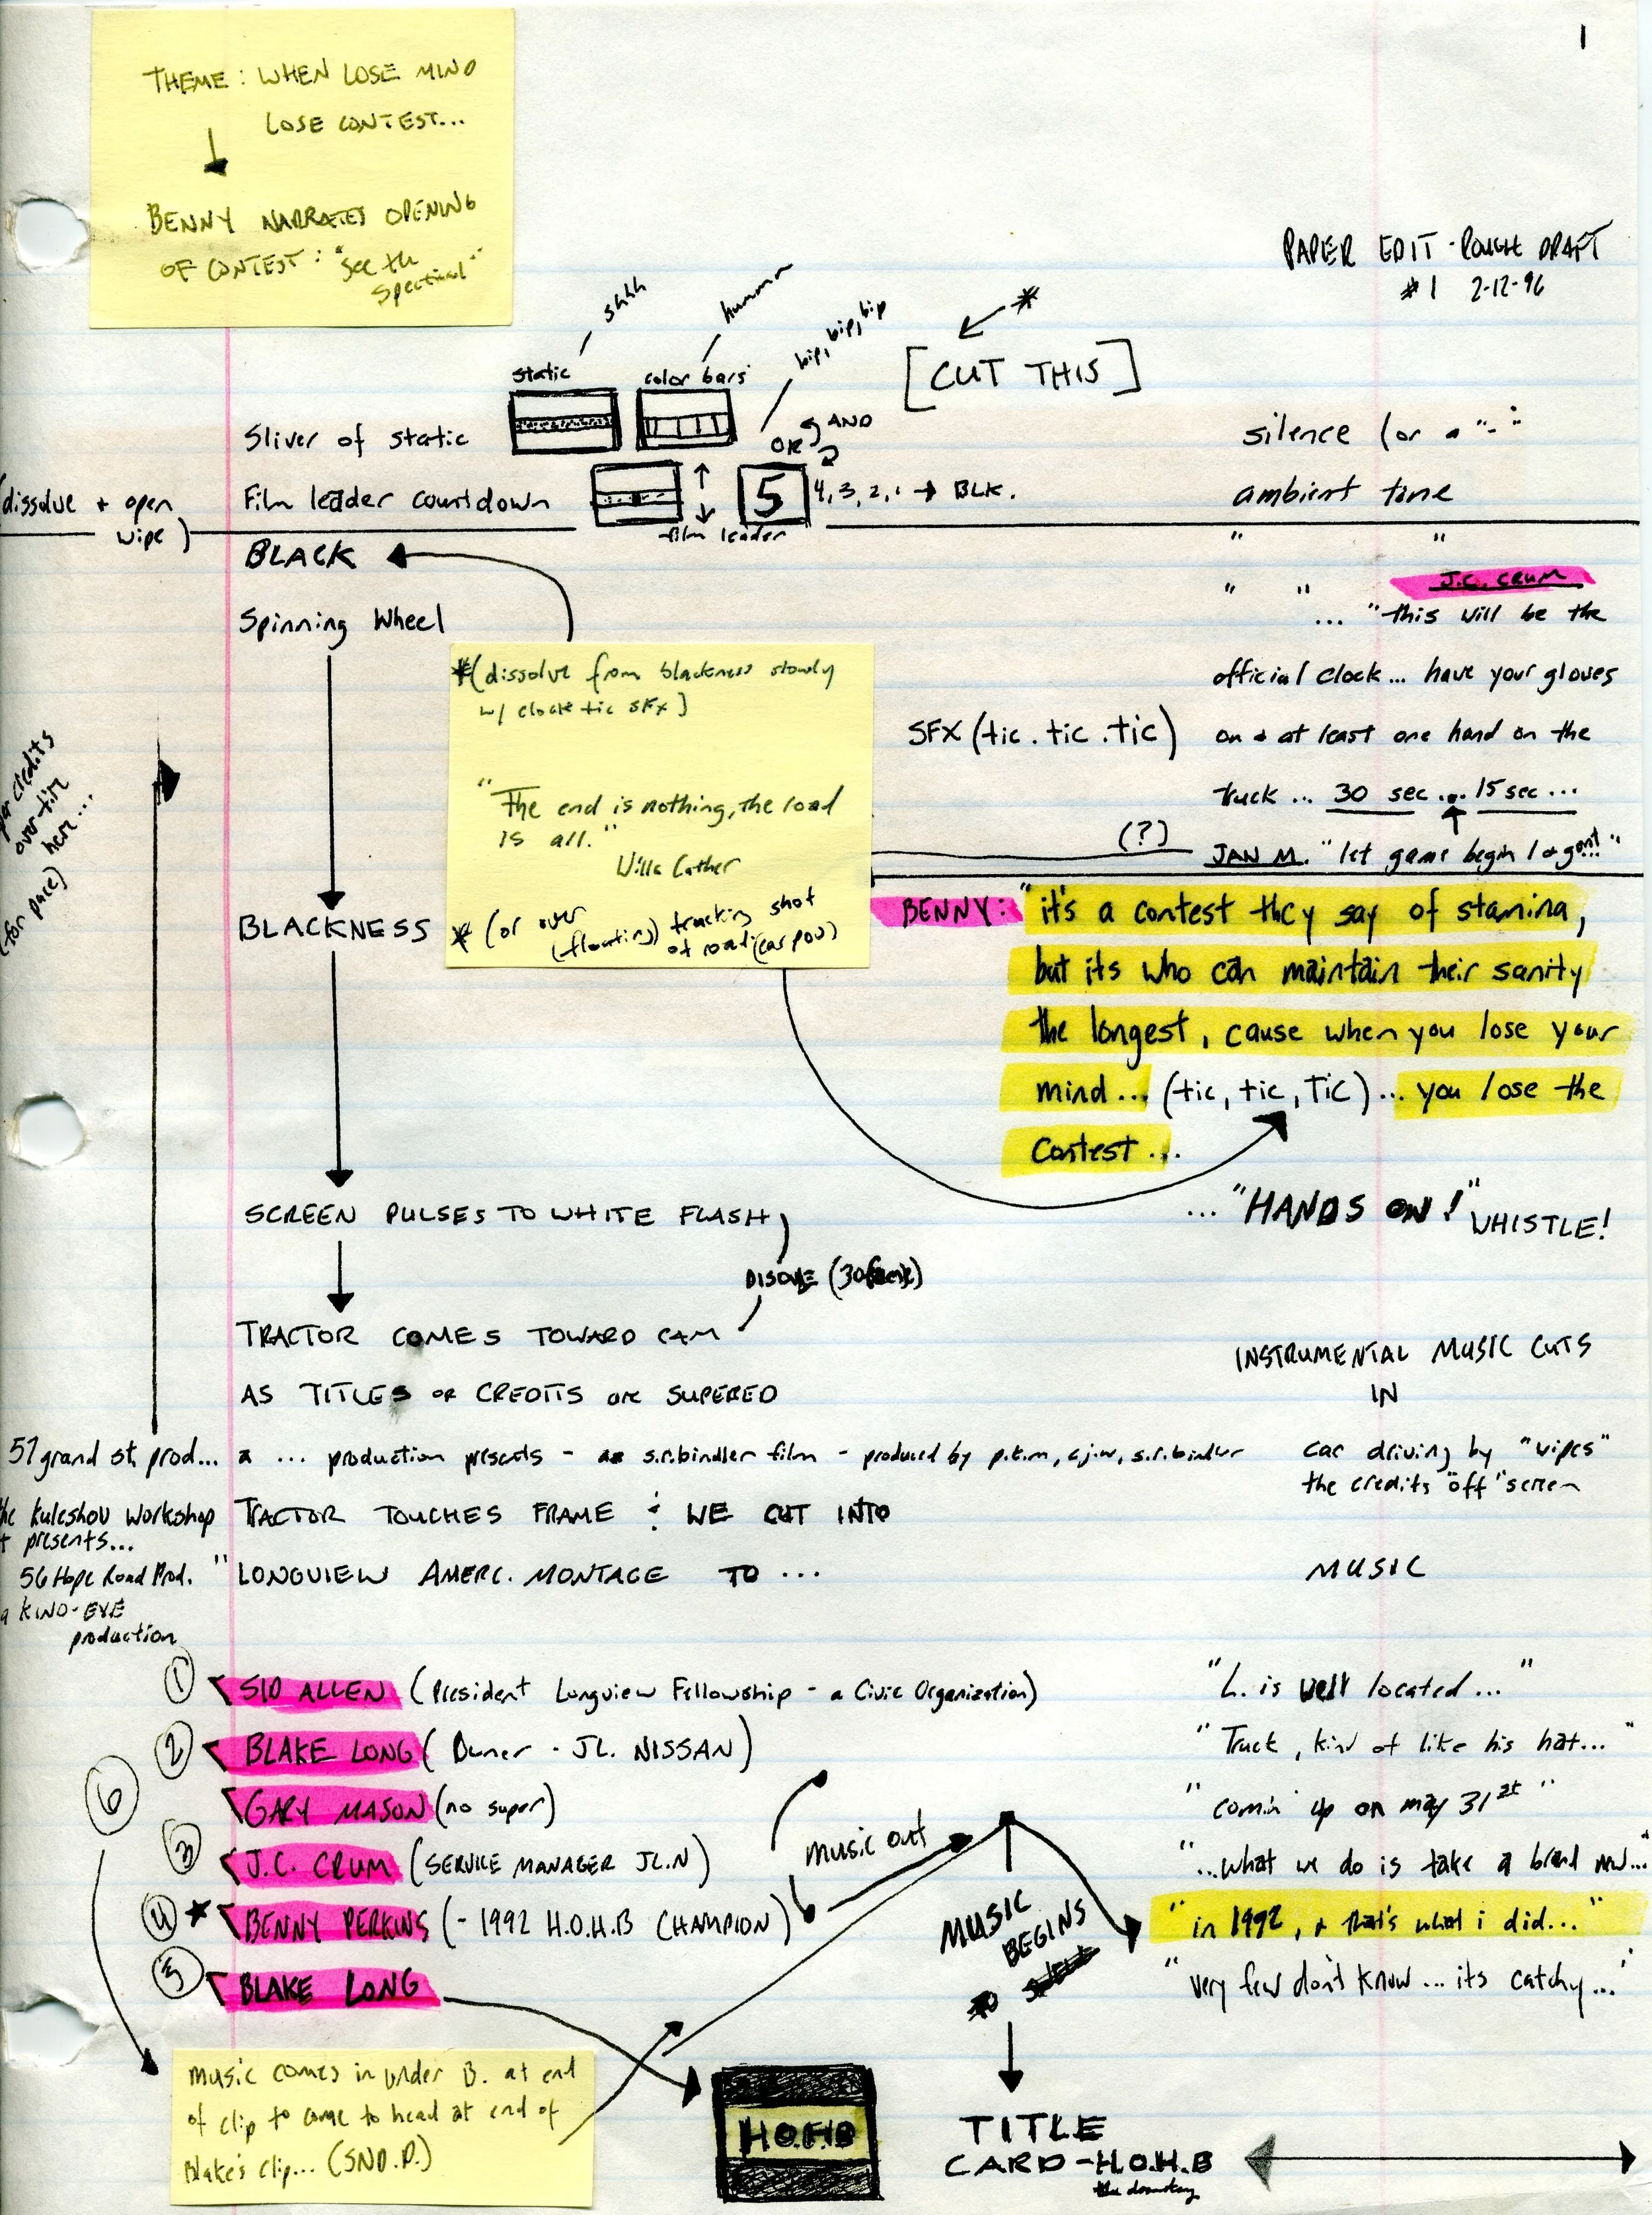 1
THEME: WHEN LOSE MIND
LOSE CONTEST...
BENNY NARRATES OPENING
OF CONTEST: "see the
spectical"
PAPER EDIT - ROUGH DRAFT
#1 2-12-96
shhh
hummm
bip, bip, bip
*
[CUT THIS]
static
color bars
Sliver of static
OR AND
silence (or a "-"
(dissolve + open
wipe)
Film leader countdown
5
4, 3, 2, 1 → BLK.
film leader
ambient tone
BLACK
" "
" " J.C. CRUM
Spinning Wheel
... "this will be the
official clock... have your gloves
SFX (tic . tic . tic)
on + at least one hand on the
truck ... 30 sec ... 15 sec ...
(?)
JAN M. "let game begin
*(dissolve from blackness slowly
w/ clock tic SFX)
"The end is nothing, the road
is all."
Willa Cather
* (or over
(floating) tracking shot
of road (car pov)
credits
over
here...
(for pace)
BLACKNESS
BENNY: "it's a contest they say of stamina,
but its who can maintain their sanity
the longest, cause when you lose your
mind... (tic, tic, TIC) ... you lose the
Contest...
SCREEN PULSES TO WHITE FLASH
... "HANDS ON!" WHISTLE!
TRACTOR COMES TOWARD CAM
AS TITLES or CREDITS are SUPERED
INSTRUMENTAL MUSIC CUTS
IN
57 grand st. prod...
a ... production presents - a s.r.bindler film - produced by p.k.m, c.j.w, s.r.bindler
car driving by "wipes"
the credits "off" screen
the kuleshov workshop
presents...
TRACTOR TOUCHES FRAME & WE CUT INTO
56 Hope Road Prod. "
LONGVIEW AMERC. MONTAGE TO ...
MUSIC
a KINO-EYE
production
1 SID ALLEN (President Longview Fellowship - a Civic Organization)
"L. is well located..."
2 BLAKE LONG (Owner - JL. NISSAN)
"Truck, kind of like his hat..."
6
GARY MASON (no super)
"comin' up on may 31st"
3 J.C. CRUM (SERVICE MANAGER JL.N)
music out
"...what we do is take a brand new..."
4 ★ BENNY PERKINS (- 1992 H.O.H.B CHAMPION)
MUSIC
BEGINS
"in 1992, + that's what i did..."
5 BLAKE LONG
"very few don't know... its catchy..."
music comes in under B. at end
of clip to come to head at end of
Blake's clip... (SND.D.)
H.O.H.B
TITLE
CARD - H.O.H.B